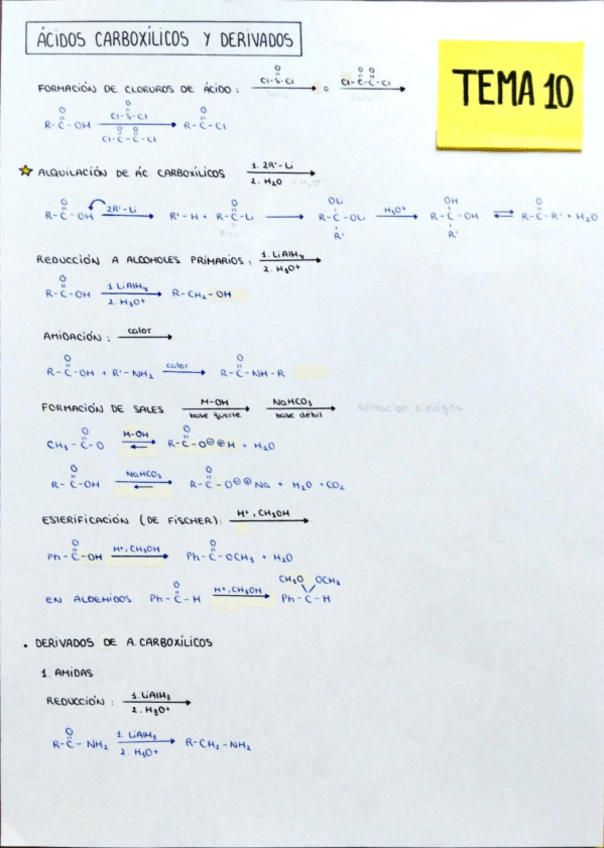 ÁCIDOS CARBOXÍLICOS Y DERIVADOS
TEMA 10
FORMACIÓN DE CLORUROS DE ÁCIDO: Cl-S-Cl o Cl-C-C-Cl
R-C-OH Cl-S-Cl Cl-C-C-Cl R-C-Cl
ALQUILACIÓN DE ÁC CARBOXÍLICOS 1. 2R'-Li 2. H2O
R-C-OH 2R'-Li R'-H + R-C-Li R-C-OLi OLi R' H3O+ R-C-OH OH R' R-C-R' + H2O
REDUCCIÓN A ALCOHOLES PRIMARIOS: 1. LiAlH4 2. H3O+
R-C-OH 1 LiAlH4 2. H3O+ R-CH2-OH
AMIDACIÓN: calor
R-C-OH + R'-NH2 calor R-C-NH-R
FORMACIÓN DE SALES M-OH base fuerte NaHCO3 base débil aplicación biológica
CH3-C-O M-OH R-C-O⊖⊕M + H2O
R-C-OH NaHCO3 R-C-O⊖⊕Na + H2O + CO2
ESTERIFICACIÓN (DE FISCHER): H+, CH3OH
Ph-C-OH H+, CH3OH Ph-C-OCH3 + H2O
EN ALDEHIDOS Ph-C-H H+, CH3OH CH3O OCH3 Ph-C-H
• DERIVADOS DE A. CARBOXÍLICOS
1. AMIDAS
REDUCCIÓN: 1. LiAlH3 2. H3O+
R-C-NH2 1. LiAlH3 2. H3O+ R-CH2-NH2